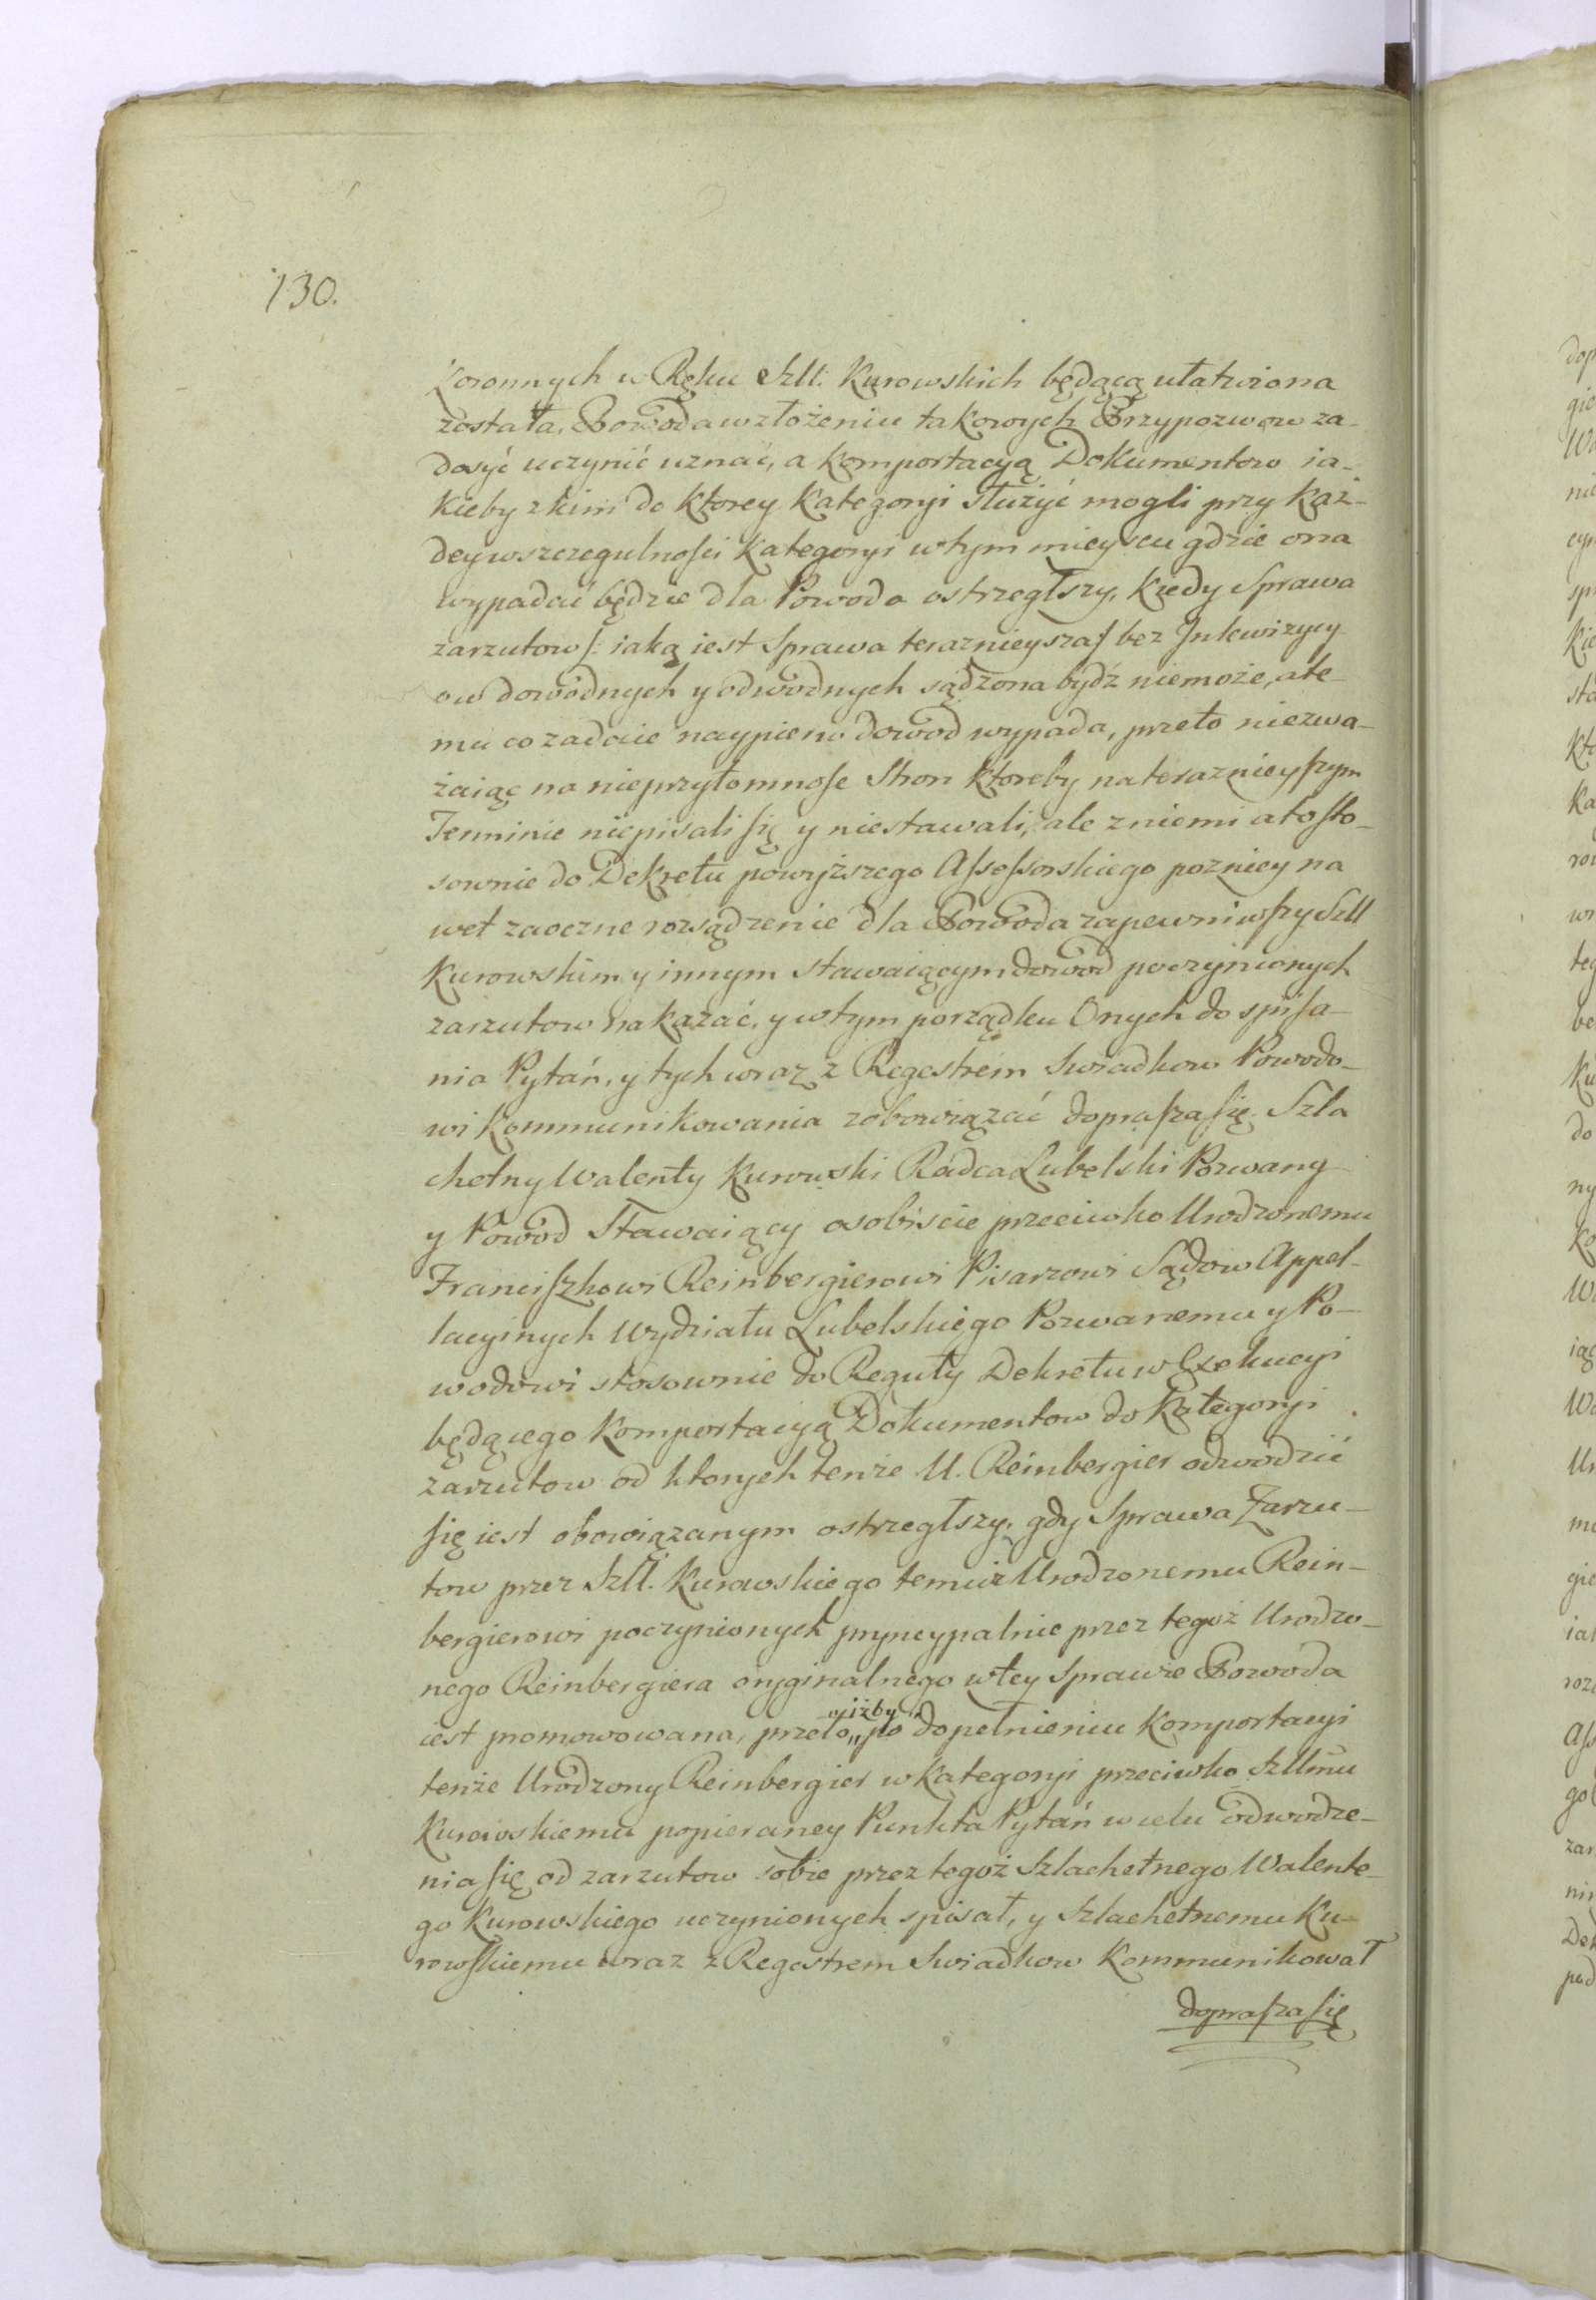 130.
Koronnych w Ręku Szll. Kurowskich będącą ułatwiona
została, Powoda w złożeniu takowych Przypozwow za-
dosyć uczynić uznać, a komportacyą Dokumentow ia-
kieby z kim do ktorey kategoryi służyć mogli przy każ-
dey wszczegulności kategoryi wtym mieyscu gdzie ona
wypadać będzie dla Powoda ostrzegłszy, kiedy Sprawa
zarzutow /: iaką iest Sprawa teraznieysza / bez Inkwizycy
ow dowodnych y odwodnych sądzona bydź niemoże, ate-
mu co zadaie naypierw dowod wypada, przeto niezwa-
żaiąc na nieprzytomność Stron ktoreby na teraznieyszym
Terminie niepisali się y niestawali, ale z niemi a to sto-
sownie do Dekretu powyższego Assessorskiego pozniey na
wet zaoczne rozsądzenie dla Powoda zapewniwszy Szll
Kurowskim y innym stawaiącym dowod poczynionych
zarzutow nakazać, y wtym porządku Onych do spisa-
nia Pytań, y tych wraz z Regestrem Swiadkow Powodo-
wi kommunikowania zobowiązać doprasza się. Szla
chetny Walenty Kurowski Radca Lubelski Pozwany
y Powod Stawaiący osobiscie przeciwko Urodzonemu
Franciszkowi Reinbergierowi Pisarzowi Sądow Appel-
lacyinych Wydziału Lubelskiego Pozwanemu y Po-
wodowi stosownie do Reguły Dekretu w Exekucyi
będącego komportacyą Dokumentow do kategoryi
zarzutow od ktorych tenże U. Reinbergier odwodzić
się iest obowiązanym ostrzegłszy, gdy Sprawa Zarzu-
tow przez Szll. Kurowskiego temuż Urodzonemu Rein-
bergierowi poczynionych pryncypalnie przez tegoż Urodzo-
nego Reinbergiera oryginalnego wtey Sprawie Powoda
iest promowowana, przeto „iżby" po dopełnieniu komportacyi
tenże Urodzony Reinbergier w kategoryi przeciwko Szllmu
Kurowskiemu popieraney Punkta Pytań w celu odwodze-
nia się od zarzutow sobie przez tegoż Szlachetnego Walente-
go Kurowskiego uczynionych spisał, y Szlachetnemu Ku-
rowskiemu wraz z Regestrem Swiadkow kommunikował
doprasza się